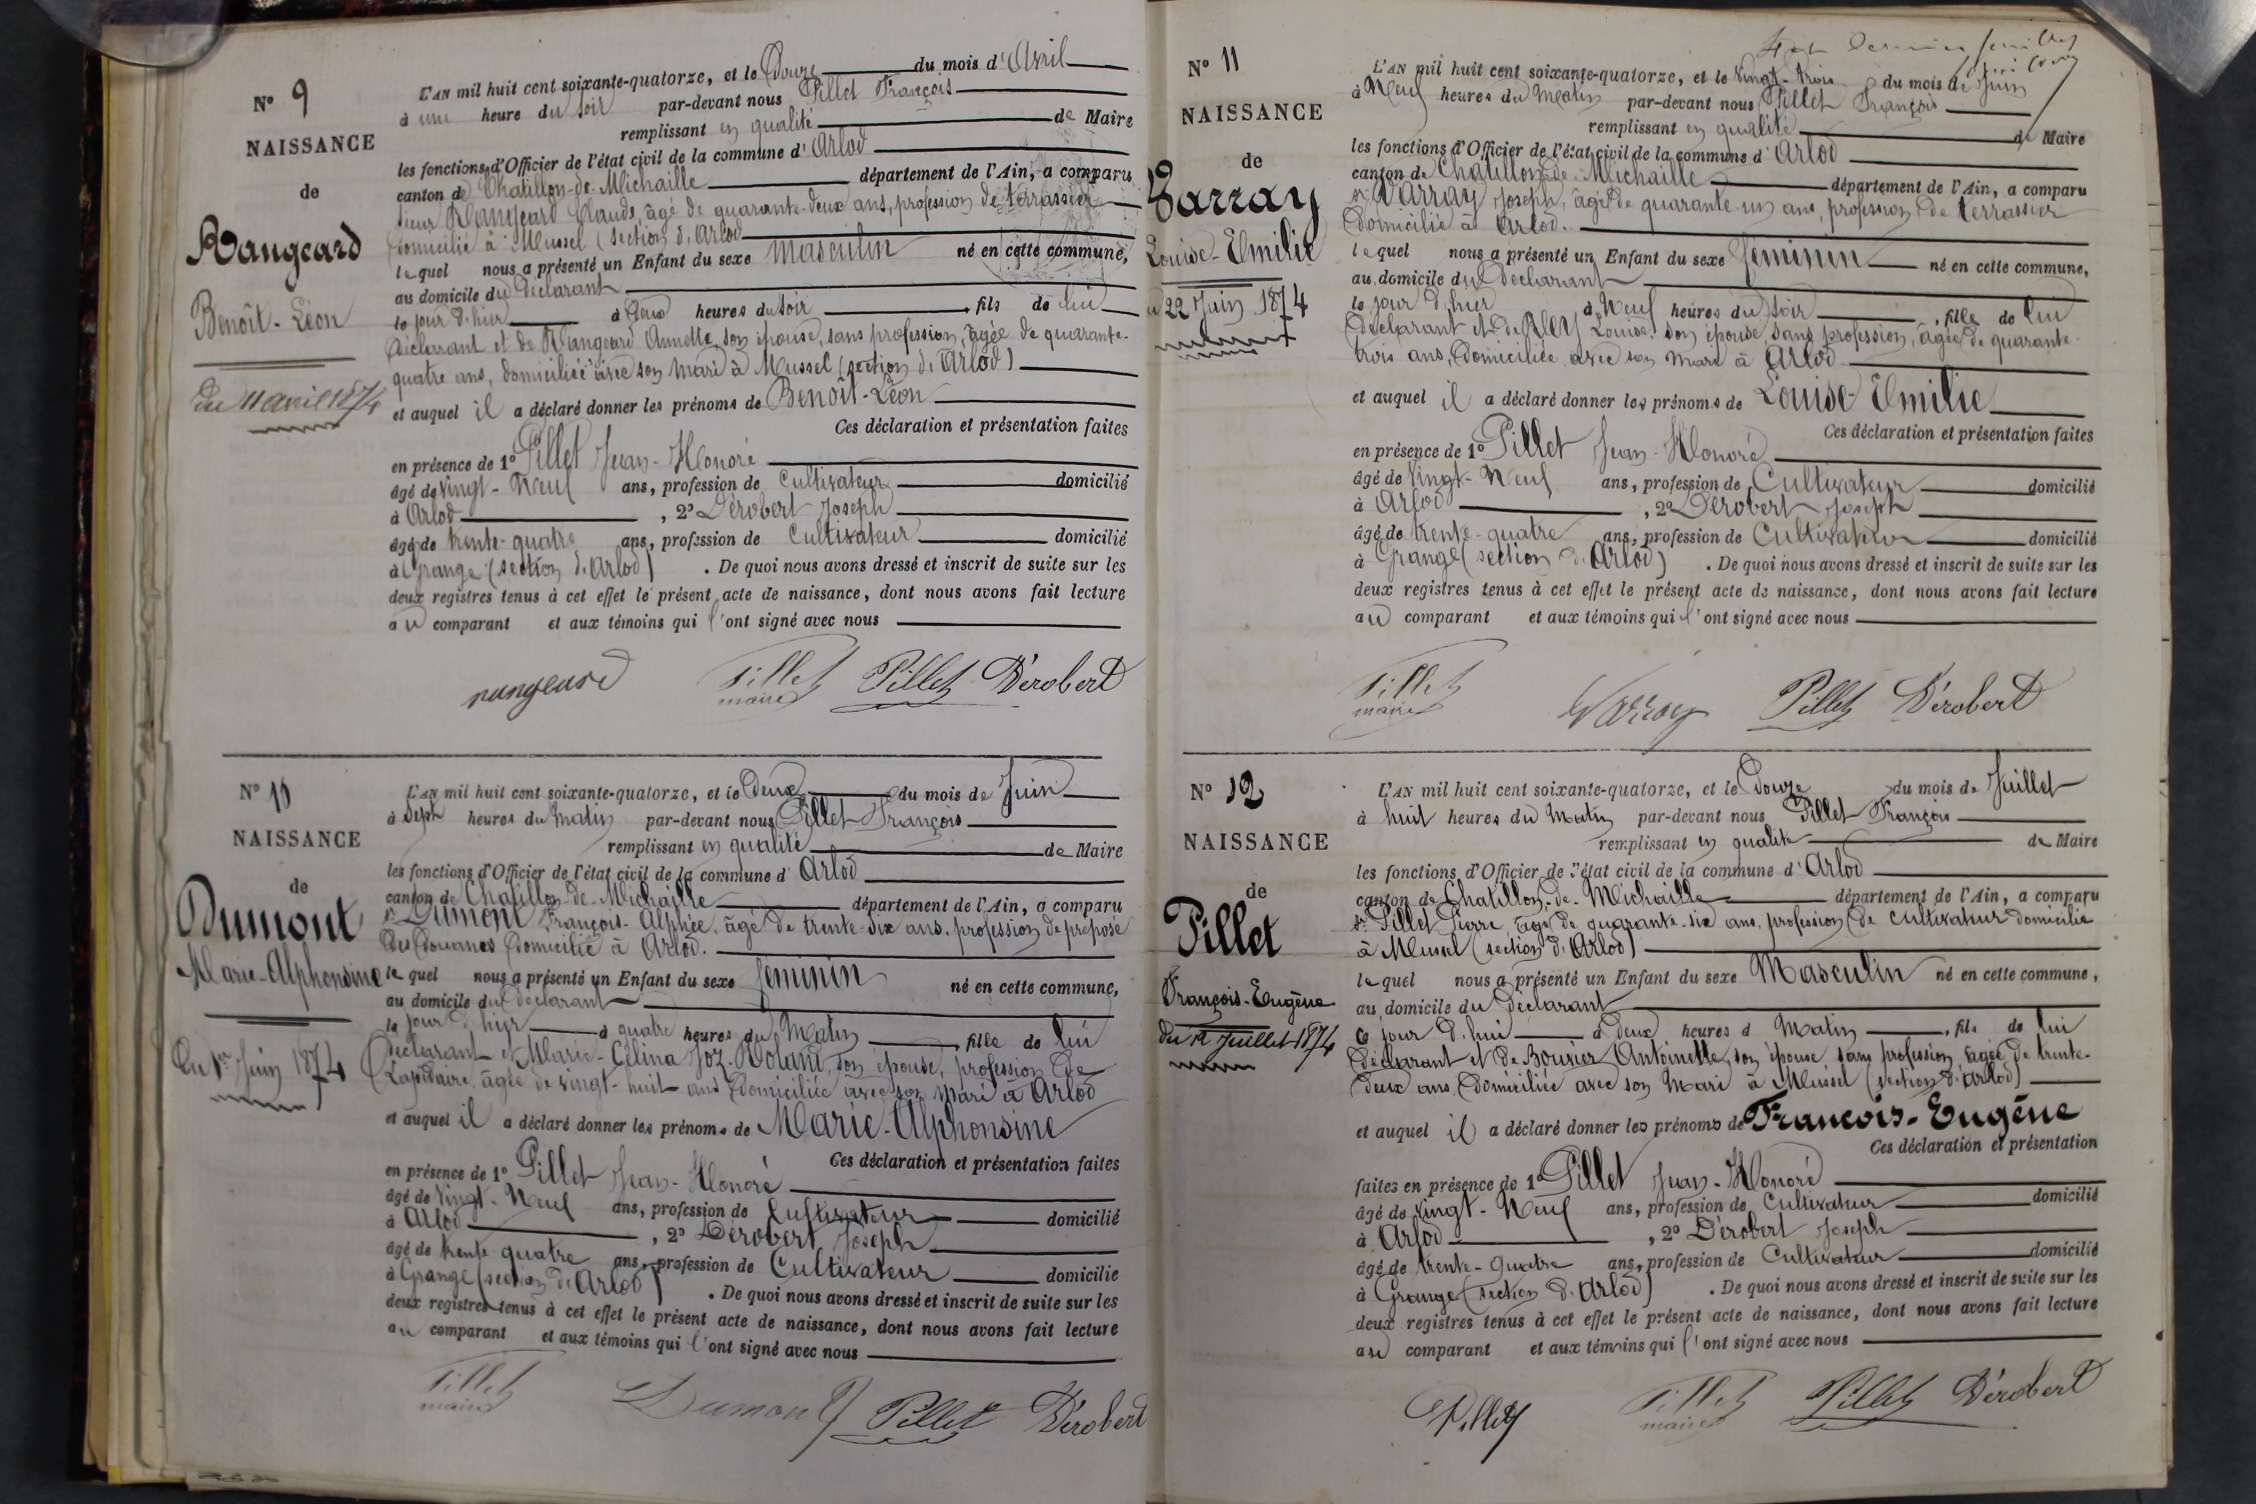 N° 9
NAISSANCE
de
Rangeard
Benoît-Léon
Du 11 avril 1874
L'AN mil huit cent soixante-quatorze, et le Douze du mois d'Avril
à une heure du soir par-devant nous Pillet François
remplissant en qualité de Maire
les fonctions d'Officier de l'état civil de la commune d'Arlod
canton de Chatillon-de-Michaille département de l'Ain, a comparu
sieur Rangeard Claude, âgé de quarante-deux ans, profession de terrassier
domicilié à Mussel (section d'Arlod
lequel nous a présenté un Enfant du sexe masculin né en cette commune,
au domicile du Déclarant
le jour d'hier à deux heures du soir fils de lui
déclarant et de Rangeard Annette son épouse, sans profession, âgée de quarante-
quatre ans, domiciliée avec son mari à Mussel (section d'Arlod)
et auquel il a déclaré donner les prénoms de Benoît-Léon
Ces déclaration et présentation faites
en présence de 1° Pillet Jean-Honoré
âgé de vingt-neuf ans, profession de Cultivateur domicilié
à Arlod , 2° Dérobert Joseph
âgé de trente-quatre ans, profession de Cultivateur domicilié
à Grange (section d'Arlod) . De quoi nous avons dressé et inscrit de suite sur les
deux registres tenus à cet effet le présent acte de naissance, dont nous avons fait lecture
au comparant et aux témoins qui l'ont signé avec nous
rangeard Pillet Pillet Dérobert
maire
N° 10
NAISSANCE
de
Dumont
Marie-Alphonsine
Du 1er Juin 1874
L'AN mil huit cent soixante-quatorze, et le Deux du mois de Juin
à sept heures du matin par-devant nous Pillet François
remplissant en qualité de Maire
les fonctions d'Officier de l'état civil de la commune d'Arlod
canton de Chatillon-de-Michaille département de l'Ain, a comparu
sr Dumont François-Alphée, âgé de trente-six ans, profession de préposé
des Douanes domicilié à Arlod.
lequel nous a présenté un Enfant du sexe féminin né en cette commune,
au domicile du déclarant
le jour d'hier à quatre heures du Matin , fille de lui
déclarant et Marie-Célina Joz-Roland, son épouse, profession de
Lapidaire, âgée de vingt-huit ans domiciliée avec son mari à Arlod
et auquel il a déclaré donner les prénoms de Marie-Alphonsine
Ces déclaration et présentation faites
en présence de 1° Pillet Jean-Honoré
âgé de vingt-neuf ans, profession de Cultivateur domicilié
à Arlod , 2° Dérobert Joseph
âgé de trente quatre ans, profession de Cultivateur domicilié
à Grange (section d'Arlod) . De quoi nous avons dressé et inscrit de suite sur les
deux registres tenus à cet effet le présent acte de naissance, dont nous avons fait lecture
au comparant et aux témoins qui l'ont signé avec nous
Pillet Dumont Pillet Dérobert
maire
N° 11
NAISSANCE
de
Varray
Louise-Emilie
du 22 Juin 1874
L'AN mil huit cent soixante-quatorze, et le vingt-trois du mois de Juin
à Neuf heures du Matin par-devant nous Pillet François
remplissant en qualité de Maire
les fonctions d'Officier de l'état civil de la commune d'Arlod
canton de Chatillon-de-Michaille département de l'Ain, a comparu
sr Varray Joseph, âgé de quarante-un ans, profession de terrassier
domicilié à Arlod.
lequel nous a présenté un Enfant du sexe féminin né en cette commune,
au domicile du Déclarant
le jour d'hier à Neuf heures du soir , fille de lui
déclarant et de Louise son épouse, sans profession, âgée de quarante-
trois ans, domiciliée avec son mari à Arlod
et auquel il a déclaré donner les prénoms de Louise-Emilie
Ces déclaration et présentation faites
en présence de 1° Pillet Jean-Honoré
âgé de vingt-neuf ans, profession de Cultivateur domicilié
à Arlod , 2° Dérobert Joseph
âgé de trente-quatre ans, profession de Cultivateur domicilié
à Grange (section d'Arlod) . De quoi nous avons dressé et inscrit de suite sur les
deux registres tenus à cet effet le présent acte de naissance, dont nous avons fait lecture
au comparant et aux témoins qui l'ont signé avec nous
Pillet Varray Pillet Dérobert
maire
N° 12
NAISSANCE
de
Pillet
François-Eugène
du 12 Juillet 1874
L'AN mil huit cent soixante-quatorze, et le Douze du mois de Juillet
à huit heures du Matin par-devant nous Pillet François
remplissant en qualité de Maire
les fonctions d'Officier de l'état civil de la commune d'Arlod
canton de Chatillon-de-Michaille département de l'Ain, a comparu
sr Pillet Pierre, âgé de quarante-six ans, profession de cultivateur domicilié
à Mussel (section d'Arlod)
lequel nous a présenté un Enfant du sexe Masculin né en cette commune,
au domicile du Déclarant
ce jour d'hui à deux heures d Matin , fils de lui
déclarant et de Bouvier Antoinette, son épouse sans profession âgée de trente-
deux ans, domiciliée avec son Mari à Mussel (section d'Arlod)
et auquel il a déclaré donner les prénoms de François-Eugène
Ces déclaration et présentation
faites en présence de 1° Pillet Jean-Honoré
âgé de vingt-Neuf ans, profession de Cultivateur domicilié
à Arlod , 2° Dérobert Joseph
âgé de trente-Quatre ans, profession de Cultivateur domicilié
à Grange (section d'Arlod) . De quoi nous avons dressé et inscrit de suite sur les
deux registres tenus à cet effet le présent acte de naissance, dont nous avons fait lecture
au comparant et aux témoins qui l'ont signé avec nous
Pillet Pillet Pillet Dérobert
maire